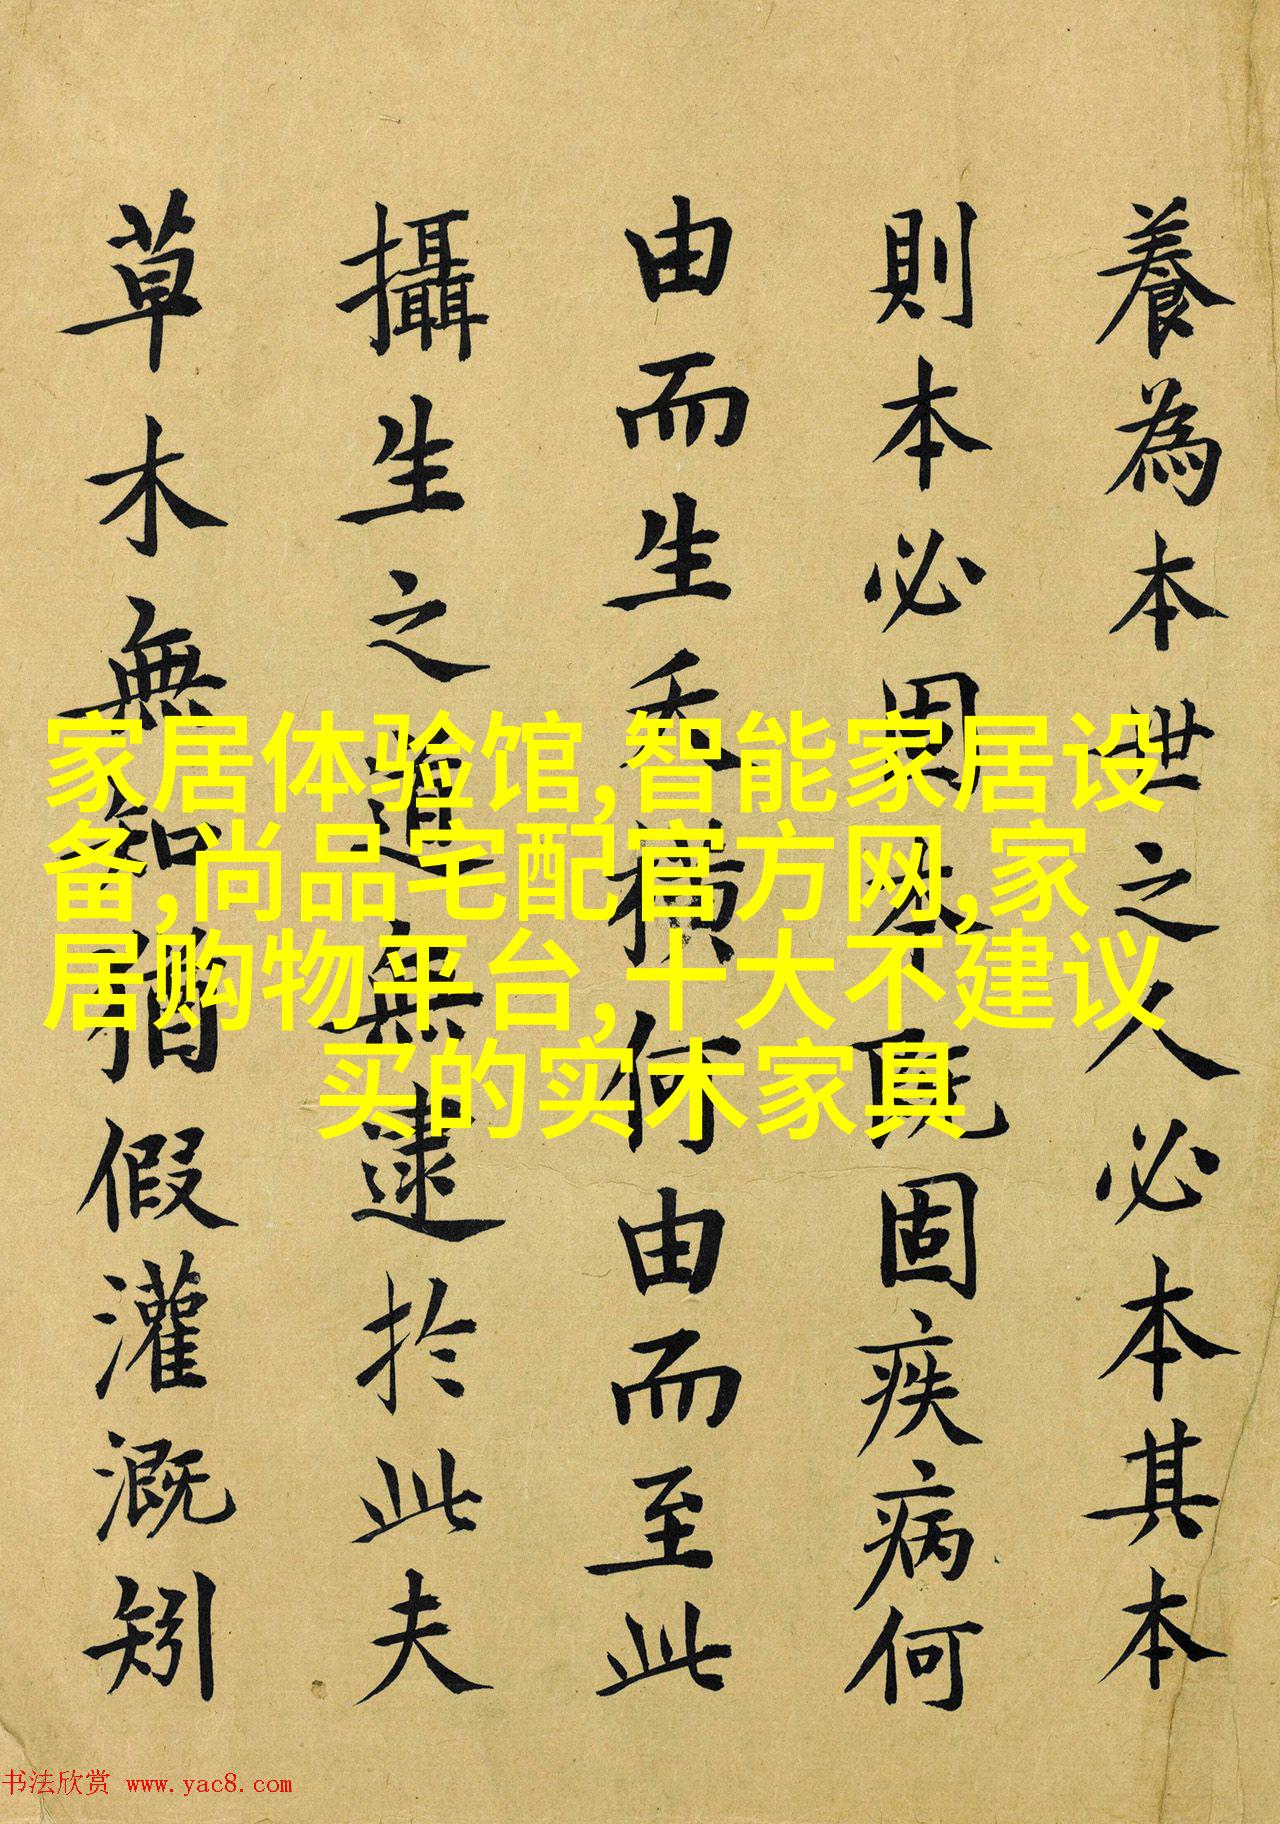 養為本世之人必本其本
則本必固本既固疾病何
由而生夭橫何由而至此
攝生之道無逮於此夫
草木無知猶假灌溉矧
家居体验馆,智能家居设
备,尚品宅配官方网,家
居购物平台,十大不建议
买的实木家具
书法欣赏 www.yac8.com